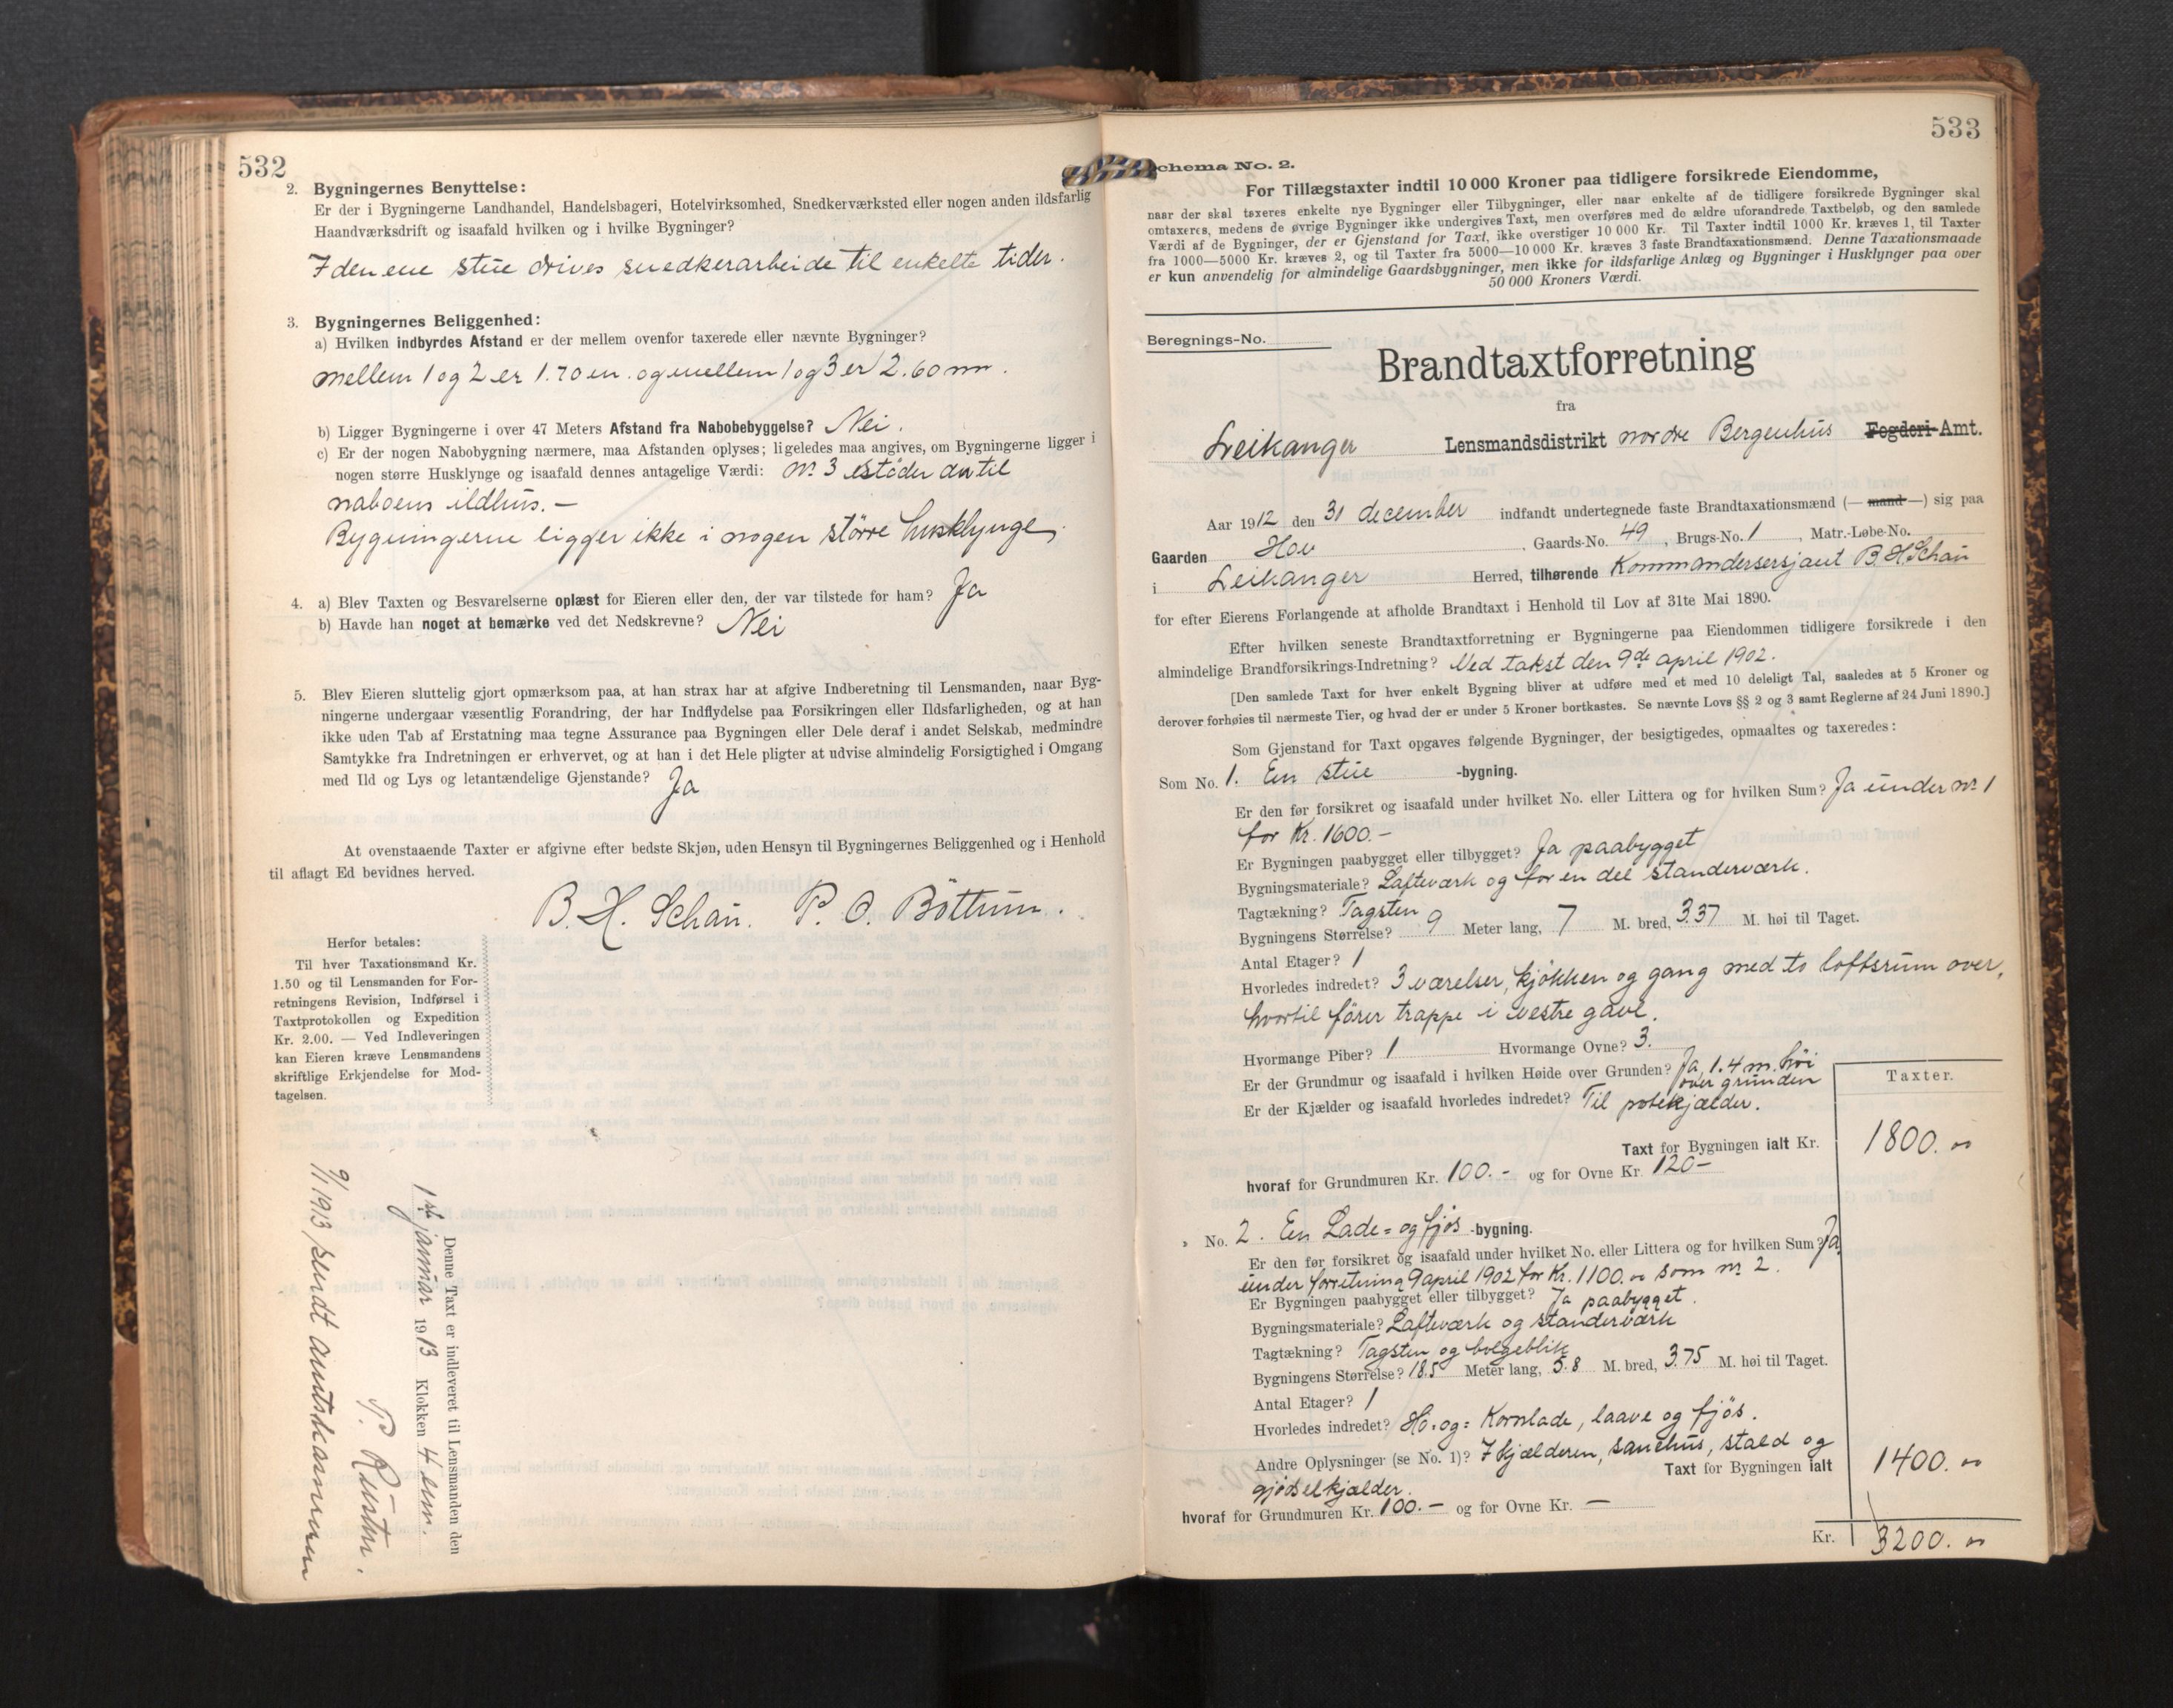 532
2. Bygningernes Benyttelse:
Er der i Bygningerne Landhandel, Handelsbageri, Hotelvirksomhed, Snedkerværksted eller nogen anden ildsfarlig
Haandværksdrift og isaafald hvilken og i hvilke Bygninger?
I den ene stue drives snedkerarbeide til enkelte tider.
3. Bygningernes Beliggenhed:
a) Hvilken indbyrdes Afstand er der mellem ovenfor taxerede eller nævnte Bygninger?
Mellem 1 og 2 er 1.70 m. og mellem 1 og 3 er 12.60 m.
b) Ligger Bygningerne i over 47 Meters Afstand fra Nabobebyggelse? Nei.
c) Er der nogen Nabobygning nærmere, maa Afstanden oplyses; ligeledes maa angives, om Bygningerne ligger i
nogen større Husklynge og isaafald dennes antagelige Værdi: Nr. 3 støder til
naboens ildhus. —
Bygningerne ligger ikke i nogen større husklynge.
4. a) Blev Taxten og Besvarelserne oplæst for Eieren eller den, der var tilstede for ham? Ja
b) Havde han noget at bemærke ved det Nedskrevne? Nei
5. Blev Eieren sluttelig gjort opmærksom paa, at han strax har at afgive Indberetning til Lensmanden, naar Byg-
ningerne undergaar væsentlig Forandring, der har Indflydelse paa Forsikringen eller Ildsfarligheden, og at han
ikke uden Tab af Erstatning maa tegne Assurance paa Bygningen eller Dele deraf i andet Selskab, medmindre
Samtykke fra Indretningen er erhvervet, og at han i det Hele pligter at udvise almindelig Forsigtighed i Omgang
med Ild og Lys og letantændelige Gjenstande? Ja
At ovenstaaende Taxter er afgivne efter bedste Skjøn, uden Hensyn til Bygningernes Beliggenhed og i Henhold
til aflagt Ed bevidnes herved.
B. H. Schau. P. O. Böttum.
Herfor betales:
Til hver Taxationsmand Kr.
1.50 og til Lensmanden for For-
retningens Revision, Indførsel i
Taxtprotokollen og Expedition
Kr. 2.00. — Ved Indleveringen
kan Eieren kræve Lensmandens
skriftlige Erkjendelse for Mod-
tagelsen.
Denne Taxt er indleveret til Lensmanden den
1ste januar 1913 Klokken 4 em.
P. Rusten.
9/1 1913 sendt amtskammen
533
Schema No. 2.
For Tillægstaxter indtil 10 000 Kroner paa tidligere forsikrede Eiendomme,
naar der skal taxeres enkelte nye Bygninger eller Tilbygninger, eller naar enkelte af de tidligere forsikrede Bygninger skal
omtaxeres, medens de øvrige Bygninger ikke undergives Taxt, men overføres med de ældre uforandrede Taxtbeløb, og den samlede
Værdi af de Bygninger, der er Gjenstand for Taxt, ikke overstiger 10 000 Kr. Til Taxter indtil 1000 Kr. kræves 1, til Taxter
fra 1000—5000 Kr. kræves 2, og til Taxter fra 5000—10 000 Kr. kræves 3 faste Brandtaxationsmænd. Denne Taxationsmaade
er kun anvendelig for almindelige Gaardsbygninger, men ikke for ildsfarlige Anlæg og Bygninger i Husklynger paa over
50 000 Kroners Værdi.
Beregnings-No.
Brandtaxtforretning
fra
Leikanger Lensmandsdistrikt nordre Bergenhus Fogderi-Amt.
Aar 1912 den 31 december indfandt undertegnede faste Brandtaxationsmænd (— mand —) sig paa
Gaarden Hov, Gaards-No. 49, Brugs-No. 1, Matr.-Løbe-No.
i Leikanger Herred, tilhørende Kommandersersjant B. H. Schau
for efter Eierens Forlangende at afholde Brandtaxt i Henhold til Lov af 31te Mai 1890.
Efter hvilken seneste Brandtaxtforretning er Bygningerne paa Eiendommen tidligere forsikrede i den
almindelige Brandforsikrings-Indretning? Ved takst den 9de april 1902.
[Den samlede Taxt for hver enkelt Bygning bliver at udføre med et med 10 deleligt Tal, saaledes at 5 Kroner og
derover forhøies til nærmeste Tier, og hvad der er under 5 Kroner bortkastes. Se nævnte Lovs §§ 2 og 3 samt Reglerne af 24 Juni 1890.]
Som Gjenstand for Taxt opgaves følgende Bygninger, der besigtigedes, opmaaltes og taxeredes:
Som No. 1. En stue -bygning.
Er den før forsikret og isaafald under hvilket No. eller Littera og for hvilken Sum? Ja under nr. 1
for Kr. 1600.—
Er Bygningen paabygget eller tilbygget? Ja paabygget
Bygningsmateriale? Lafteværk og for en del standerværk.
Tagtækning? Tagsten
Bygningens Størrelse? 9 Meter lang, 7 M. bred, 3.37 M. høi til Taget.
Antal Etager? 1
Hvorledes indredet? 3 værelser, kjøkken og gang med to loftsrum over,
hvortil fører trappe i vestre gavl.
Hvormange Piber? 1 Hvormange Ovne? 3.
Er der Grundmur og isaafald i hvilken Høide over Grunden? Ja, 1.4 m. høi
over grunden
Er der Kjælder og isaafald hvorledes indredet? Til potetkjælder.
Taxter.
Taxt for Bygningen ialt Kr. 1800. 00
hvoraf for Grundmuren Kr. 100.— og for Ovne Kr. 120—
" No. 2. En Lade- og fjøs -bygning.
Er den før forsikret og isaafald under hvilket No. eller Littera og for hvilken Sum? Ja,
under forretning 9 april 1902 for Kr. 1100.00 som nr. 2.
Er Bygningen paabygget eller tilbygget? Ja paabygget.
Bygningsmateriale? Lafteværk og standerværk
Tagtækning? Tagsten og bølgeblik
Bygningens Størrelse? 18.5 Meter lang, 5.8 M. bred, 3.75 M. høi til Taget.
Antal Etager? 1
Hvorledes indredet? Hø- og Kornlade, laave og fjøs.
Andre Oplysninger (se No. 1)? I kjælderen, sauehus, stald og
gjødselkjælder.
Taxt for Bygningen ialt 1400. 00
hvoraf for Grundmuren Kr. 100.— og for Ovne Kr. —
Kr. 3200. 00